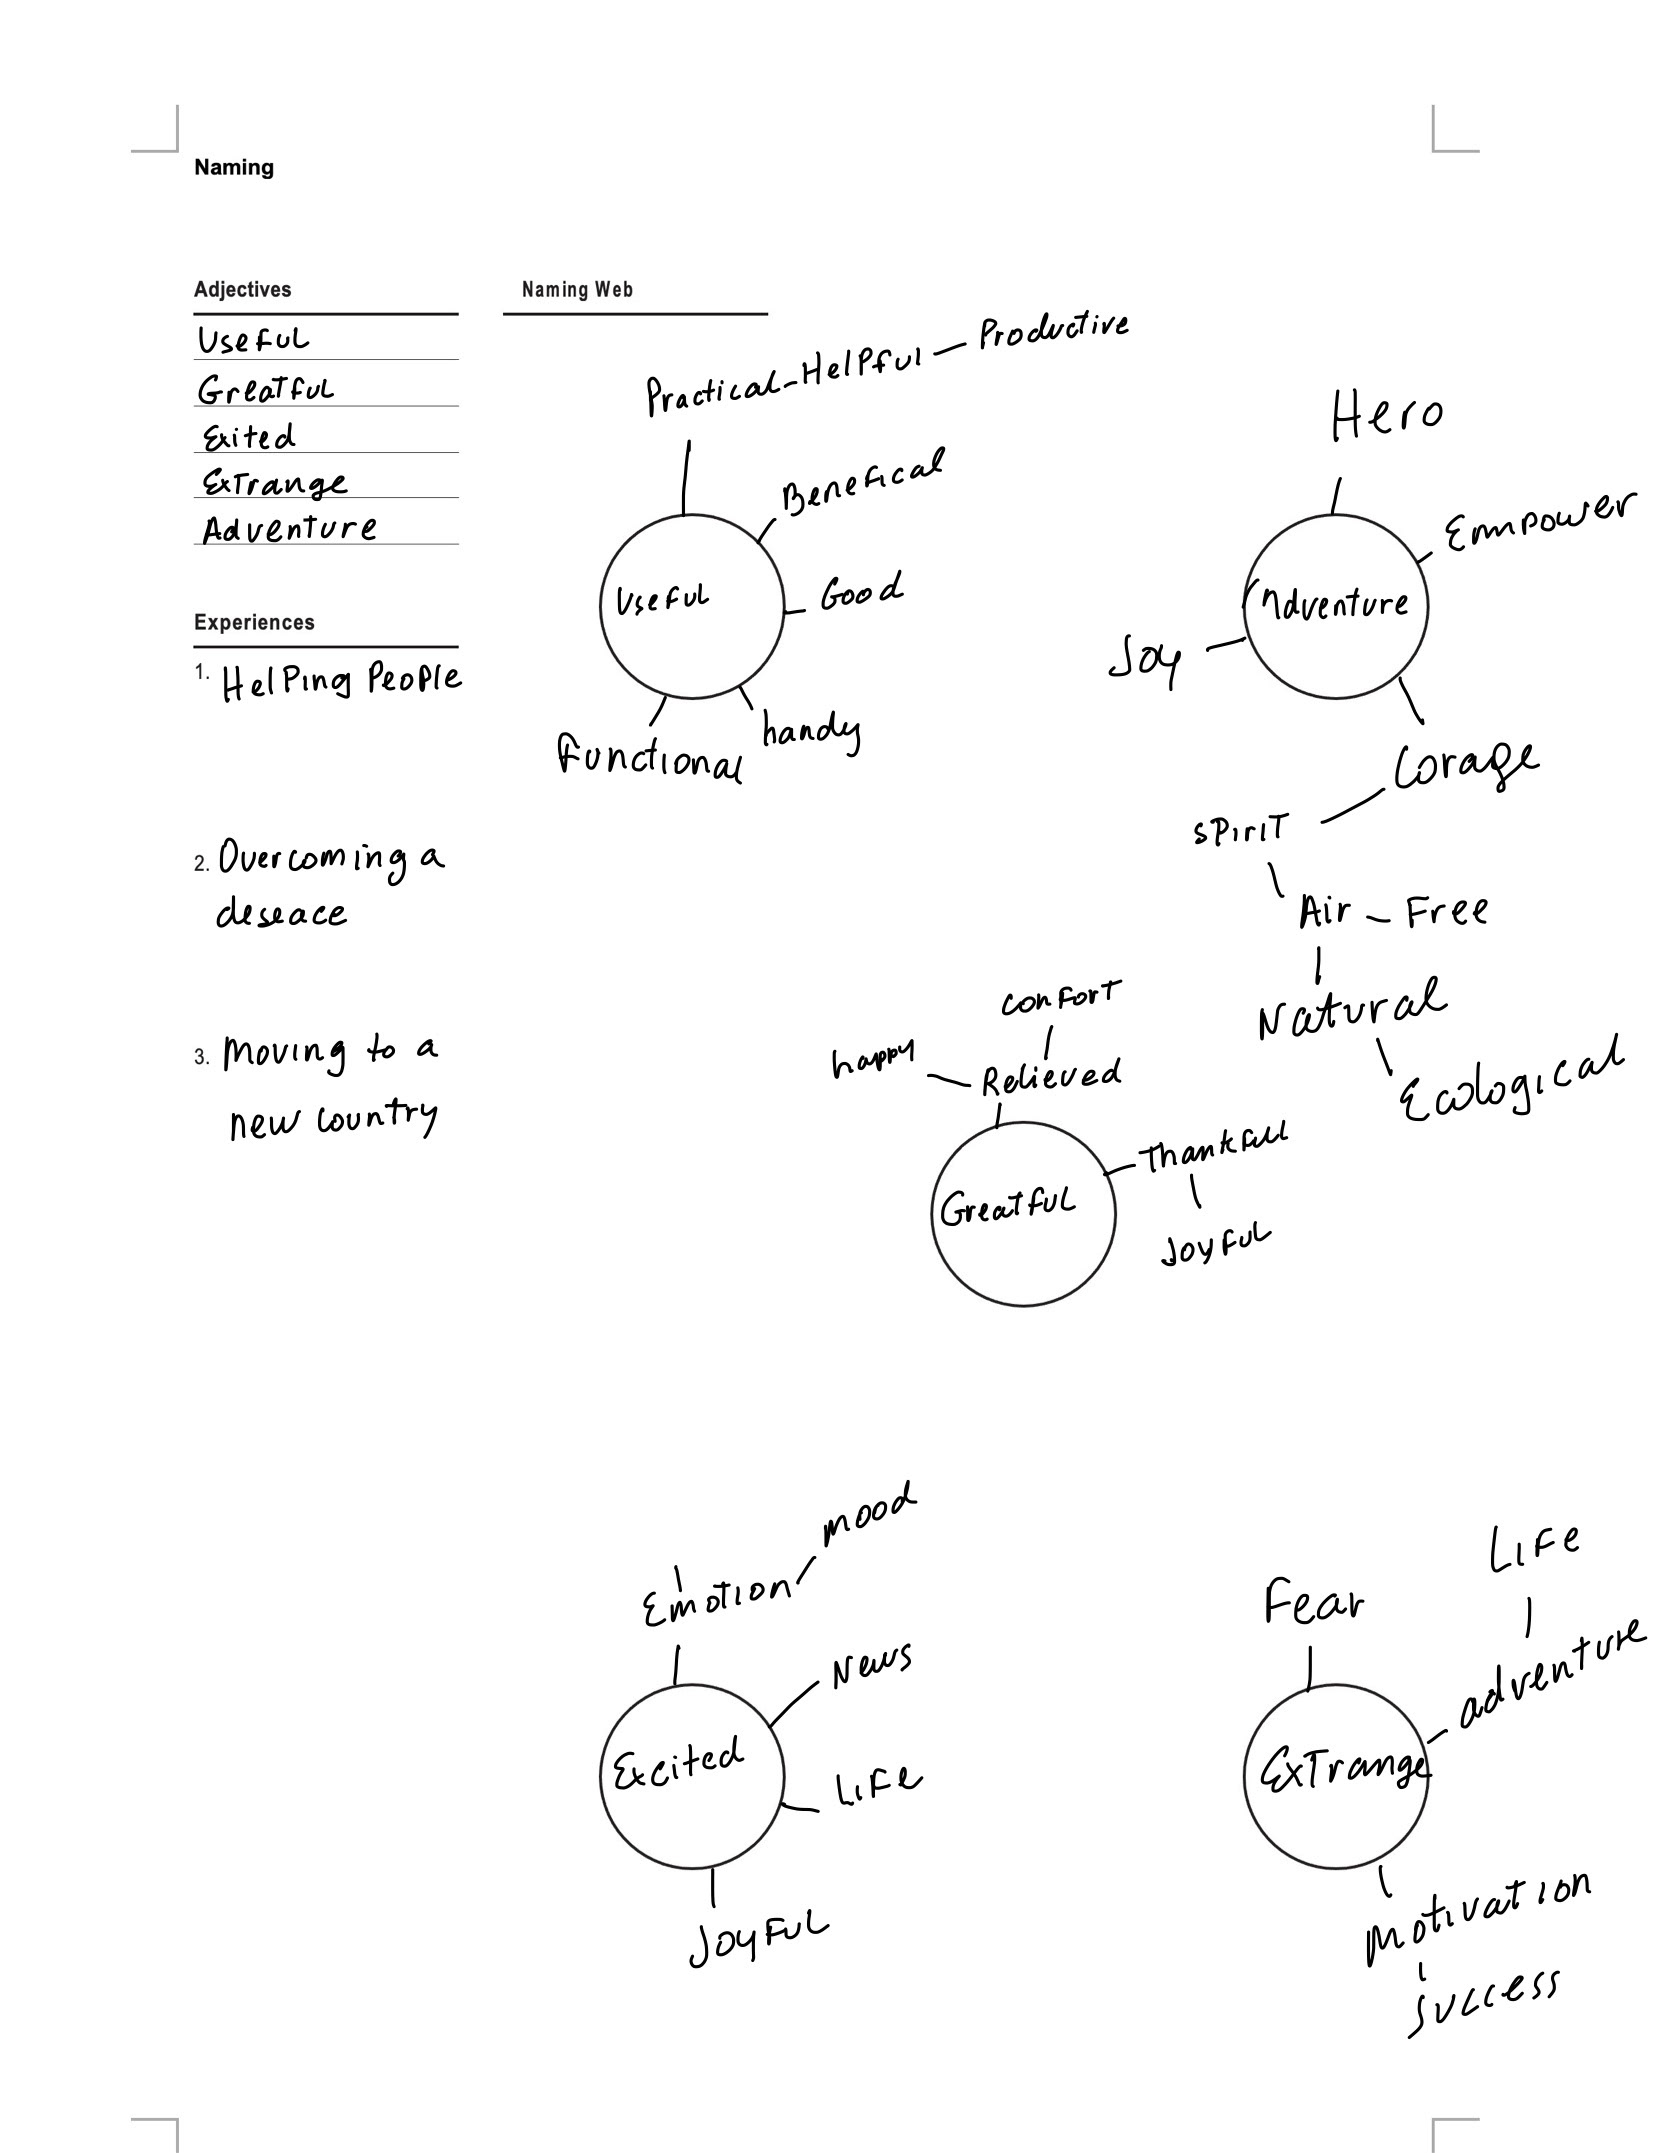 Naming
Adjectives
Useful
Greatful
Exited
Extrange
Adventure
Experiences
1. Helping People
2. Overcoming a
deseace
3. Moving to a
new country
Naming Web
Practical-Helpful — Productive
Benefical
Good
Useful
handy
functional
Hero
Empower
Adventure
Joy
Corage
spirit
Air - Free
Natural
Ecological
confort
happy
Relieved
Thankfull
Greatful
Joyful
mood
Emotion
News
Excited
Life
Joyful
Life
Fear
adventure
Extrange
motivation
success